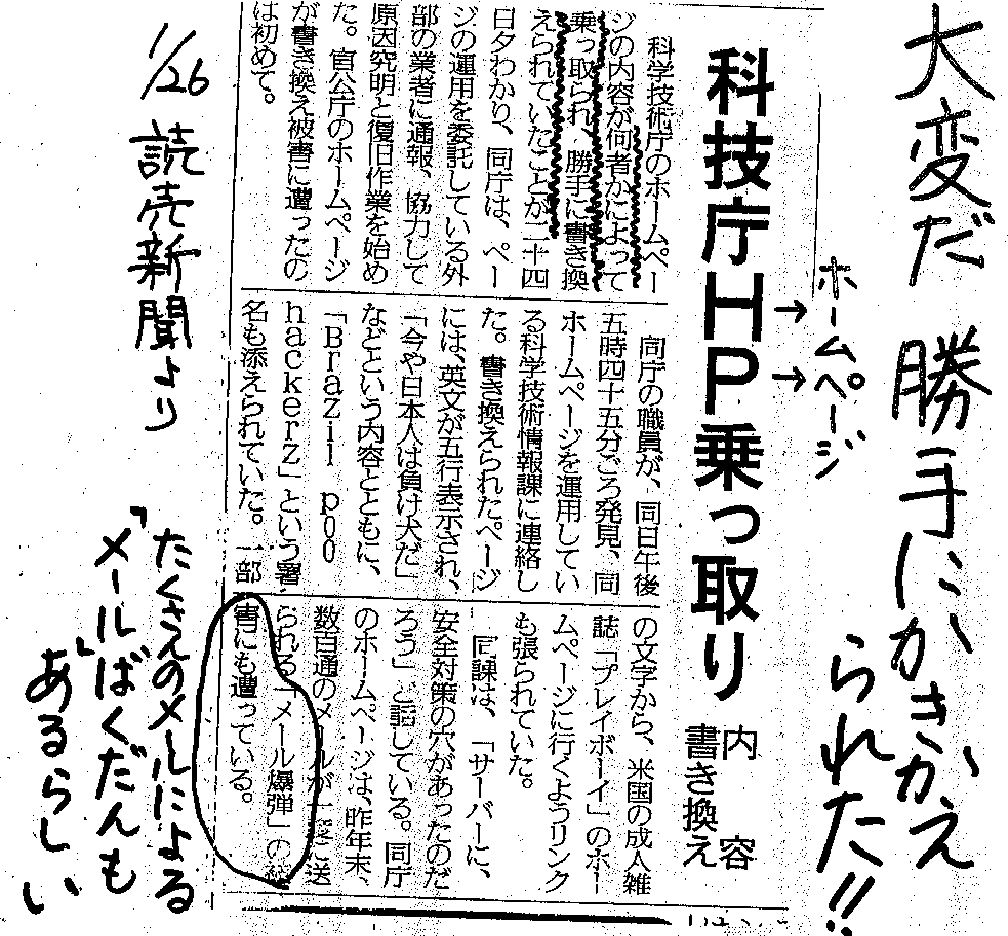 大変だ 勝手にかきかえ
られた!!
ホームページ
科技庁HP乗っ取り
内容
書き換え
科学技術庁のホームペー
ジの内容が何者かによって
乗っ取られ、勝手に書き換
えられていたことが二十四
日夕わかり、同庁は、ペー
ジの運用を委託している外
部の業者に通報、協力して
原因究明と復旧作業を始め
た。官公庁のホームページ
が書き換え被害に遭ったの
は初めて。
同庁の職員が、同日午後
五時四十五分ごろ発見、同
ホームページを運用してい
る科学技術情報課に連絡し
た。書き換えられたページ
には、英文が五行表示され、
「今や日本人は負け犬だ」
などという内容とともに、
「Brazil p00
hackerz」という署
名も添えられていた。一部
の文字から、米国の成人雑
誌「プレイボーイ」のホー
ムページに行くようリンク
も張られていた。
同課は、「サーバーに、
安全対策の穴があったのだ
ろう」と話している。同庁
のホームページは、昨年末、
数百通のメールが一度に送
られる「メール爆弾」の被
害にも遭っている。
1/26 読売新聞より
たくさんのメールによる
「メールばくだんも
」あるらしい